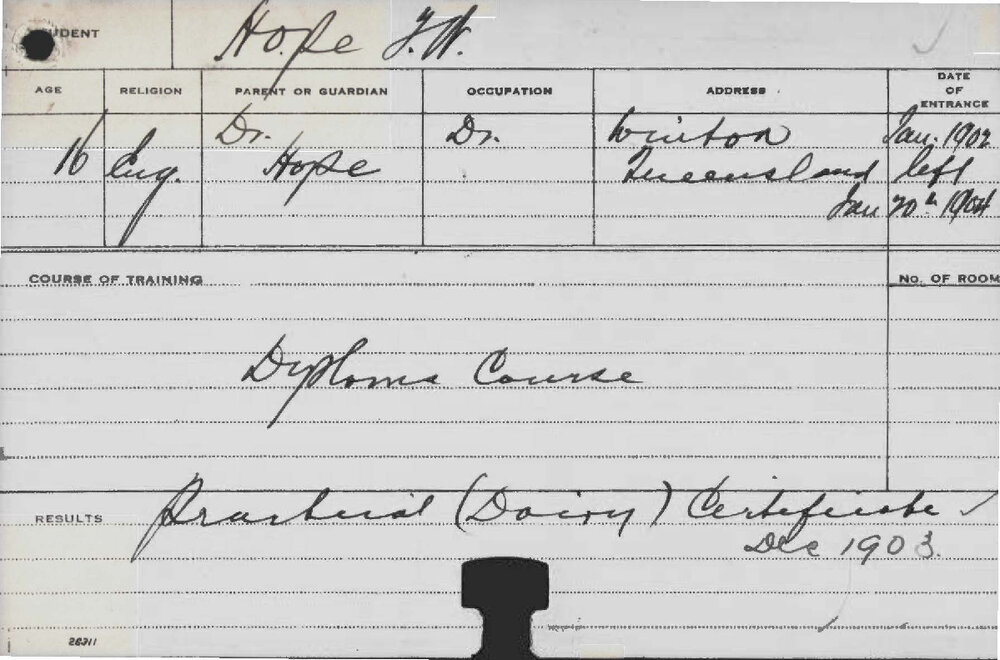 STUDENT Hope J.W.
AGE RELIGION PARENT OR GUARDIAN OCCUPATION ADDRESS DATE OF ENTRANCE
16 Eng. Dr. Hope Dr. Winton Jan. 1902
Queensland left
Jan 20th 1904
COURSE OF TRAINING
No. OF ROOM
Diploma Course
RESULTS Practical (Dairy) Certificate
Dec 1903.
26711